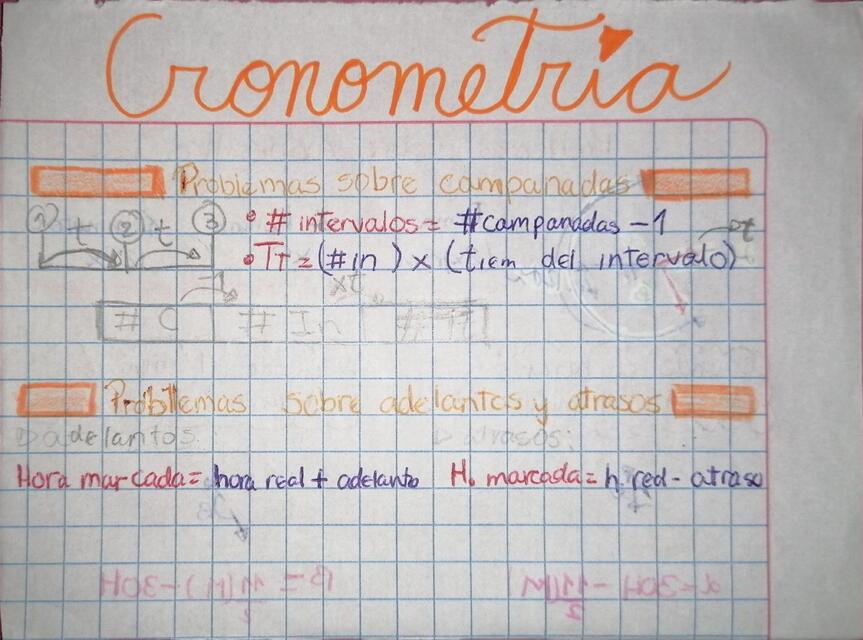 Cronometría
Problemas sobre campanadas
① t ② t ③
• # intervalos = #campanadas - 1
• Tt = (#in) × (tiem del intervalo) → t
-1 xt
# C # In # Tt
Problemas sobre adelantos y atrasos
▷ adelantos: ▷ atrasos:
Hora marcada = hora real + adelanto H. marcada = h. real - atraso